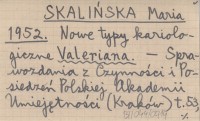 SKALIŃSKA Maria
1952. Nowe typy kariolo-
giczne Valeriana. — Spra-
wozdania z Czynności i Po-
siedzeń Polskiej Akademii
Umiejętności (Kraków) t. 53,